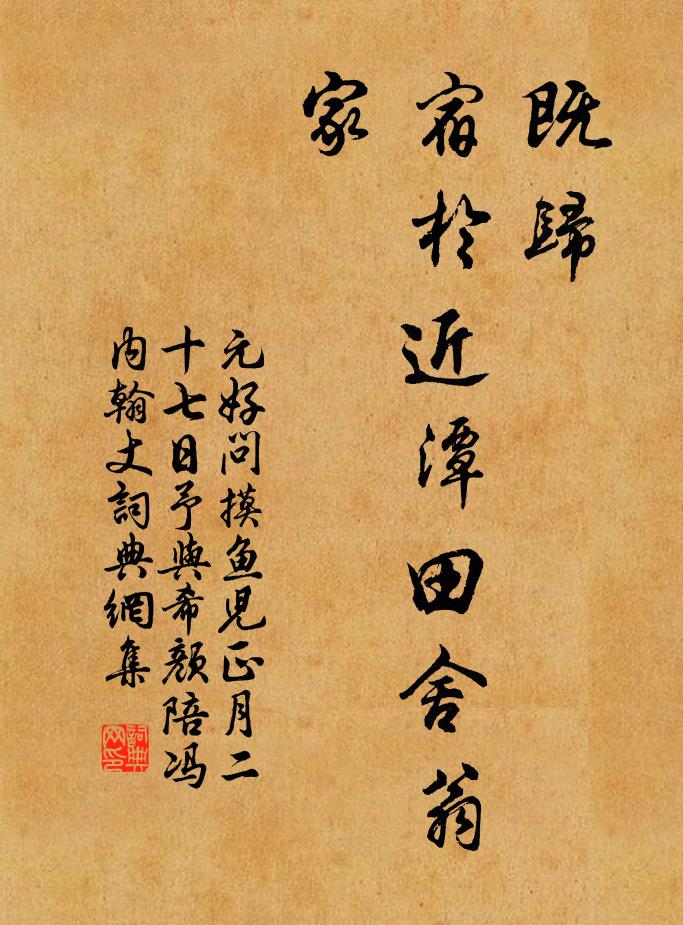 既歸
宿於近潭田舍翁
家
元好問摸鱼児正月二
十七日予與希顏陪冯
内翰丈詞典網集
詞典
网印